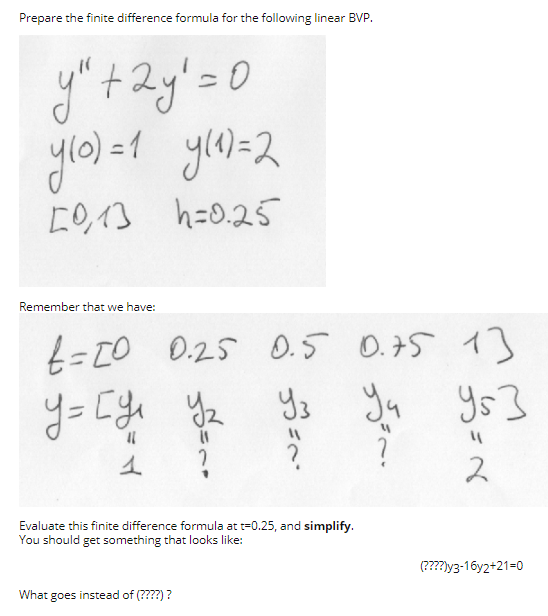 Prepare the finite difference formula for the following linear BVP.
y" + 2y' = 0
y(0) = 1 y(1) = 2
[0,1] h=0.25
Remember that we have:
t = [0 0.25 0.5 0.75 1]
y = [y1 y2 y3 y4 y5]
" " " " "
1 ? ? ? 2
Evaluate this finite difference formula at t=0.25, and simplify.
You should get something that looks like:
(????)y3-16y2+21=0
What goes instead of (????) ?